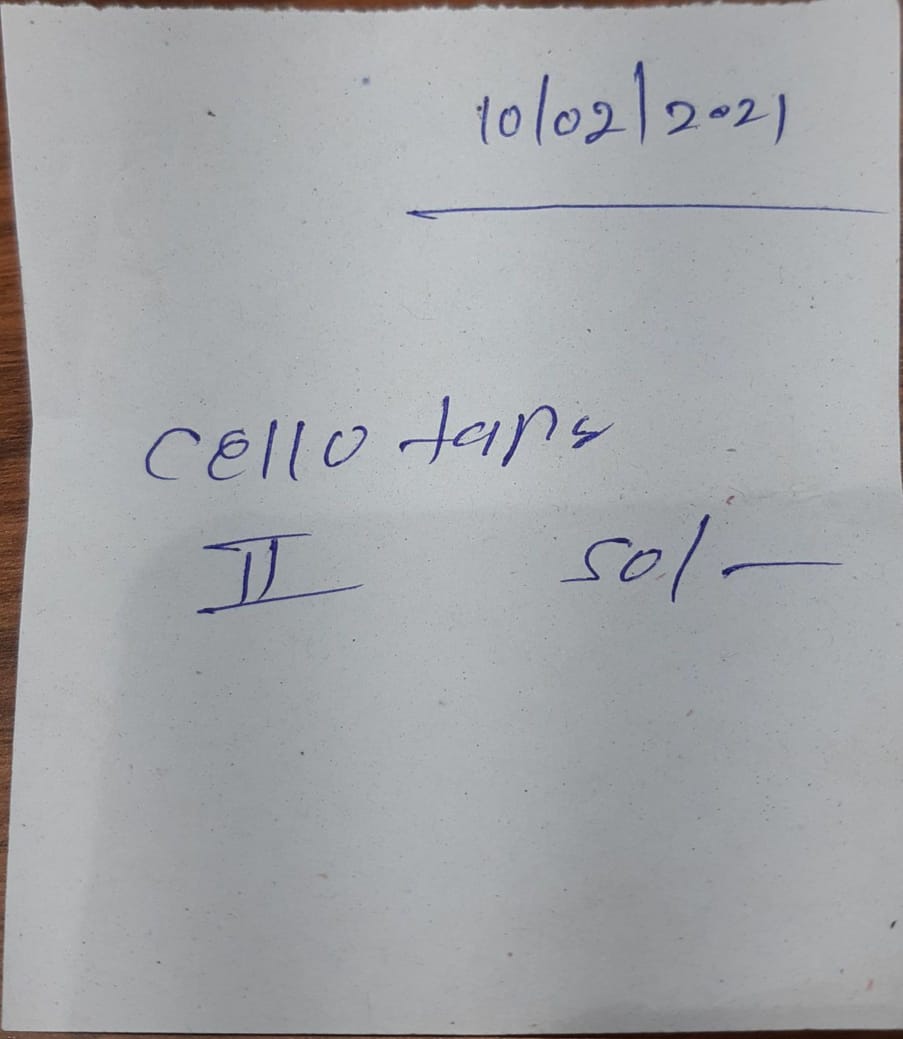 10/02/2021
cello tape
II 50/-